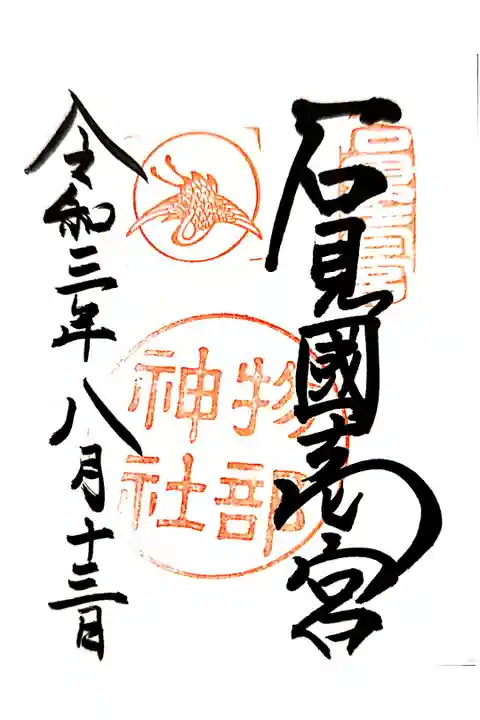 石見國壱宮
物部
神社
令和三年八月十三日